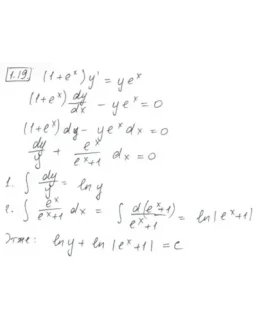 1.19. (1+e^x) y' = y e^x
(1+e^x) dy/dx - y e^x = 0
(1+e^x) dy - y e^x dx = 0
dy/y + e^x/(e^x+1) dx = 0
1. ∫ dy/y = ln y
2. ∫ e^x/(e^x+1) dx = ∫ d(e^x+1)/(e^x+1) = ln|e^x+1|
ln y + ln |e^x+1| = C